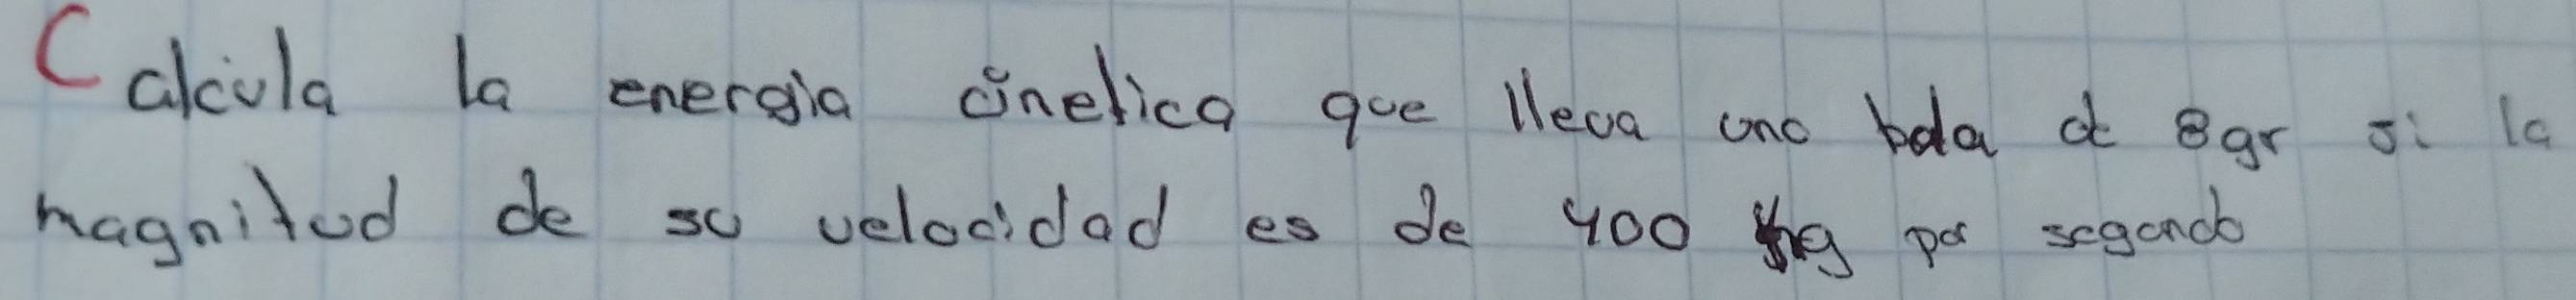 Calcula la energia cinetica que lleva una bala de 8gr si la
magnitud de su velocidad es de 400 kg por segundo